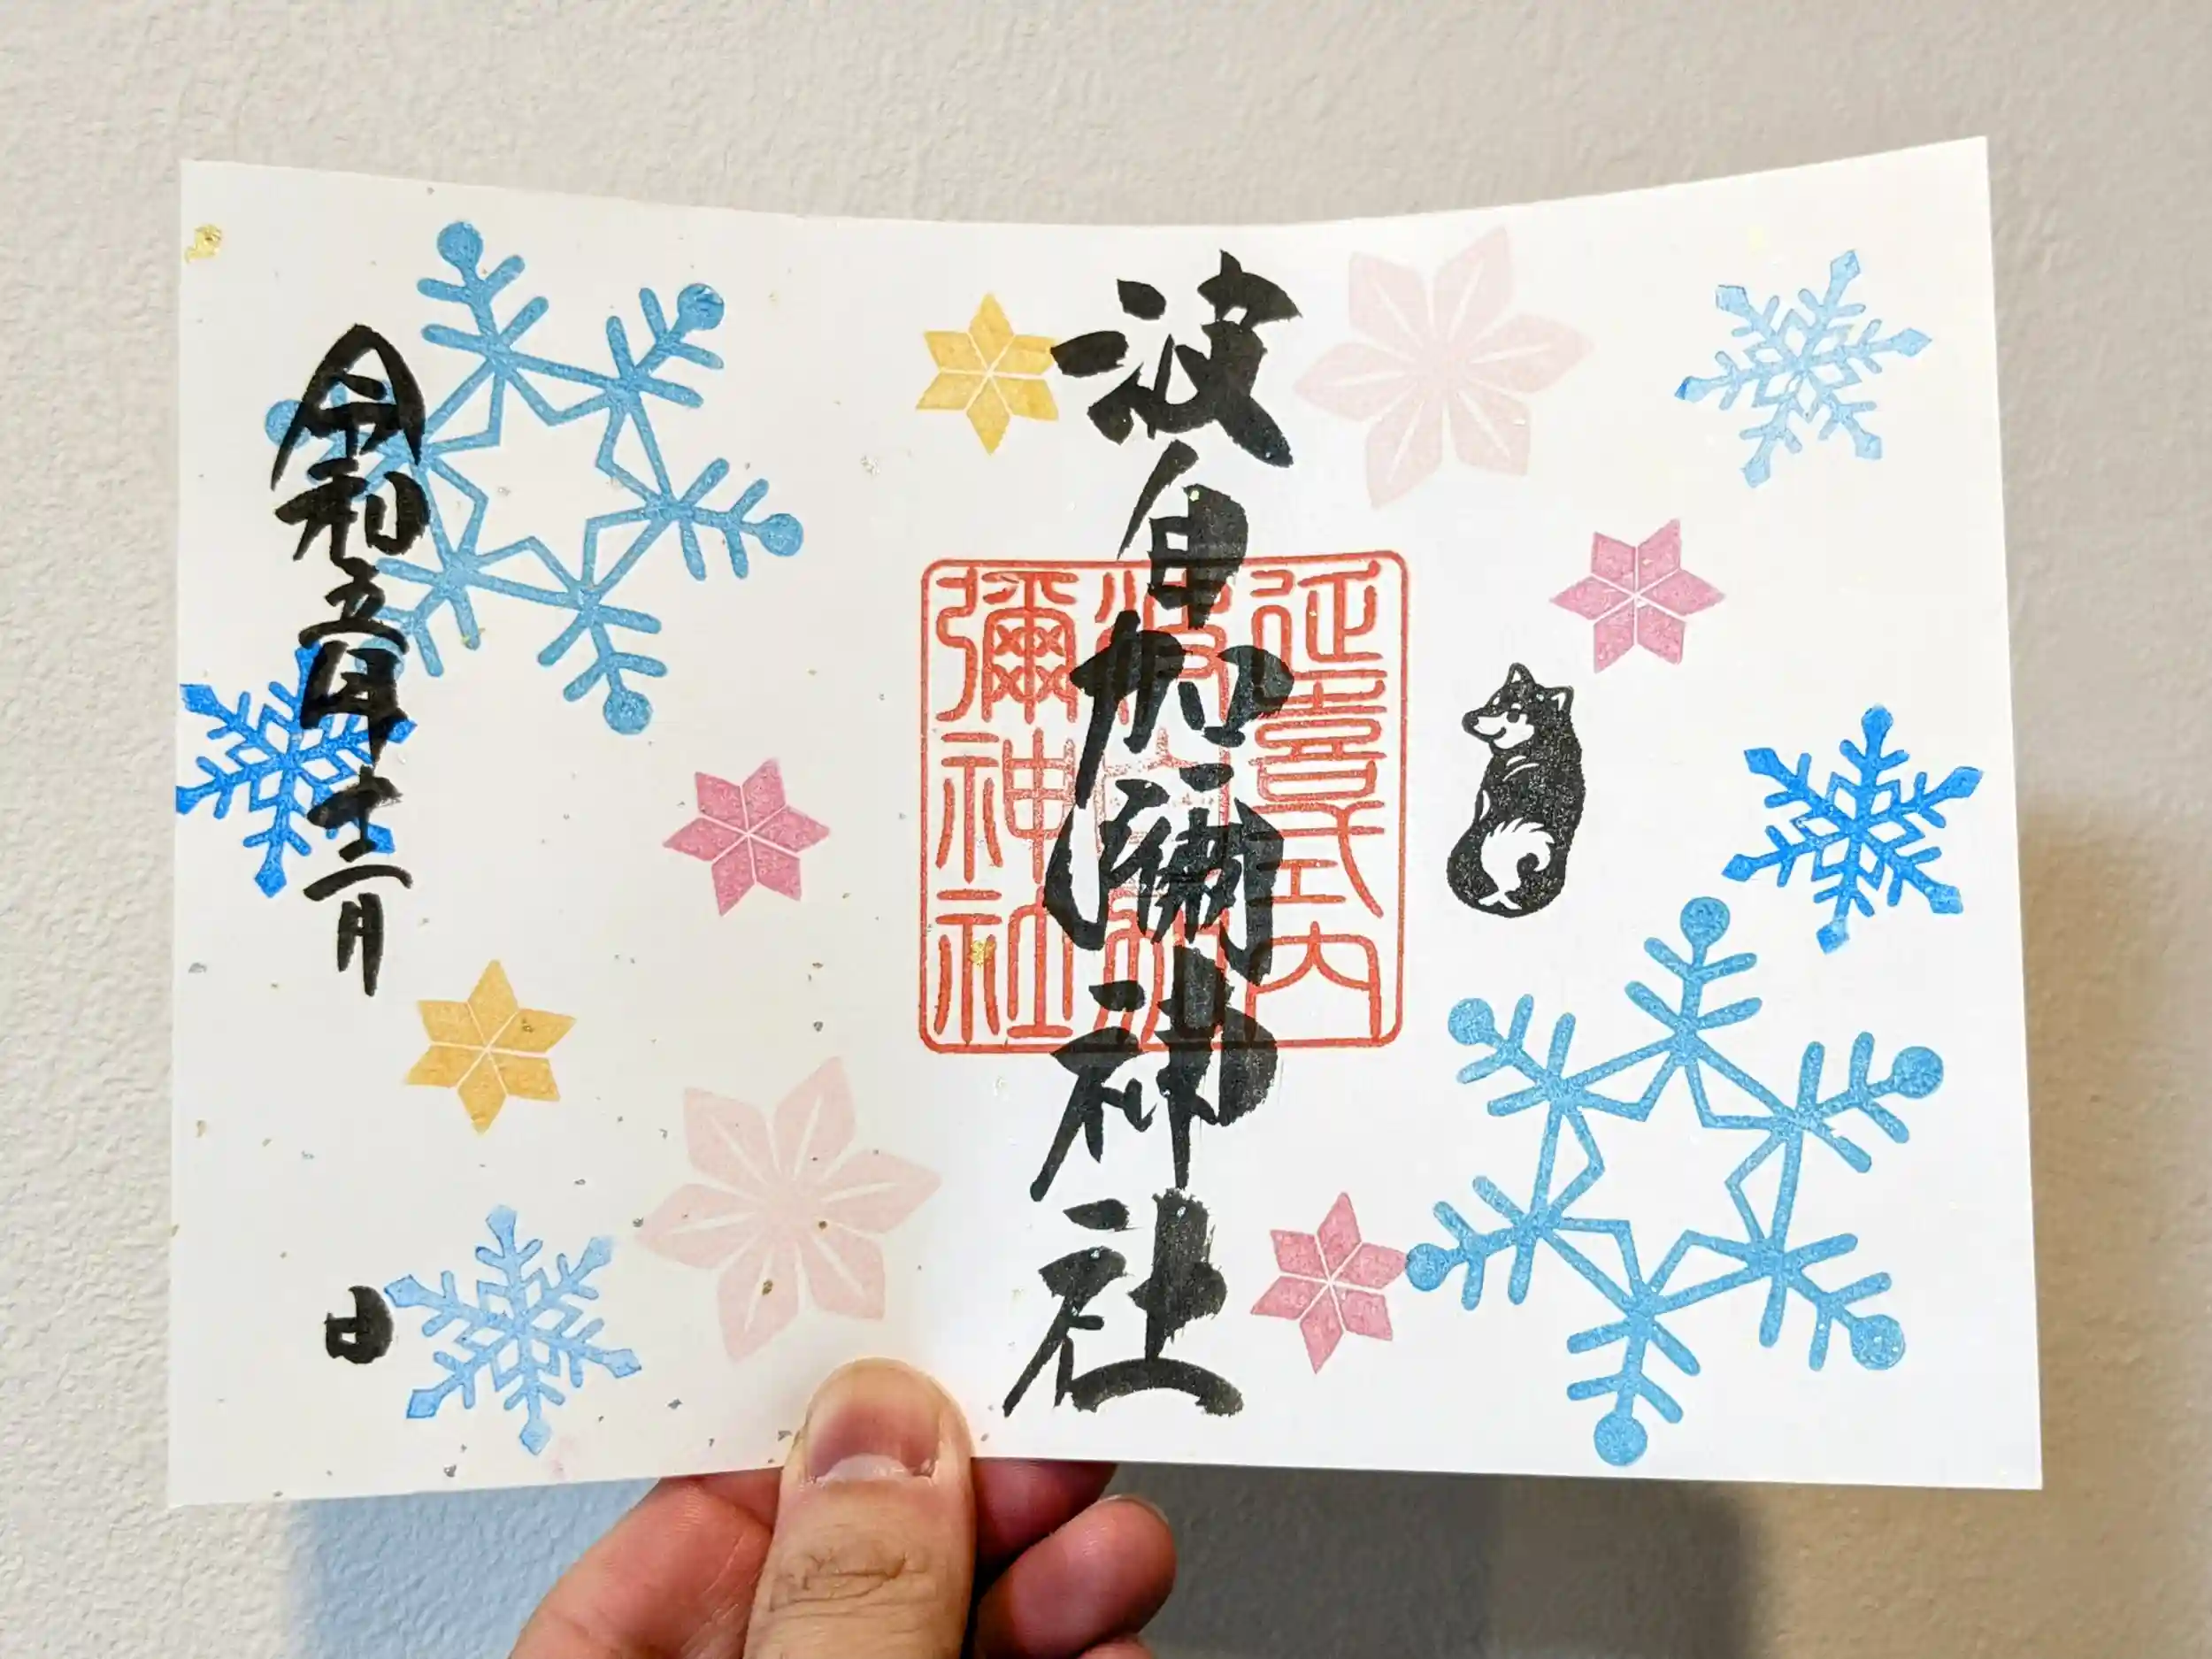 波自加彌神社
延喜式内
波自加
彌神社
令和五年十二月
日